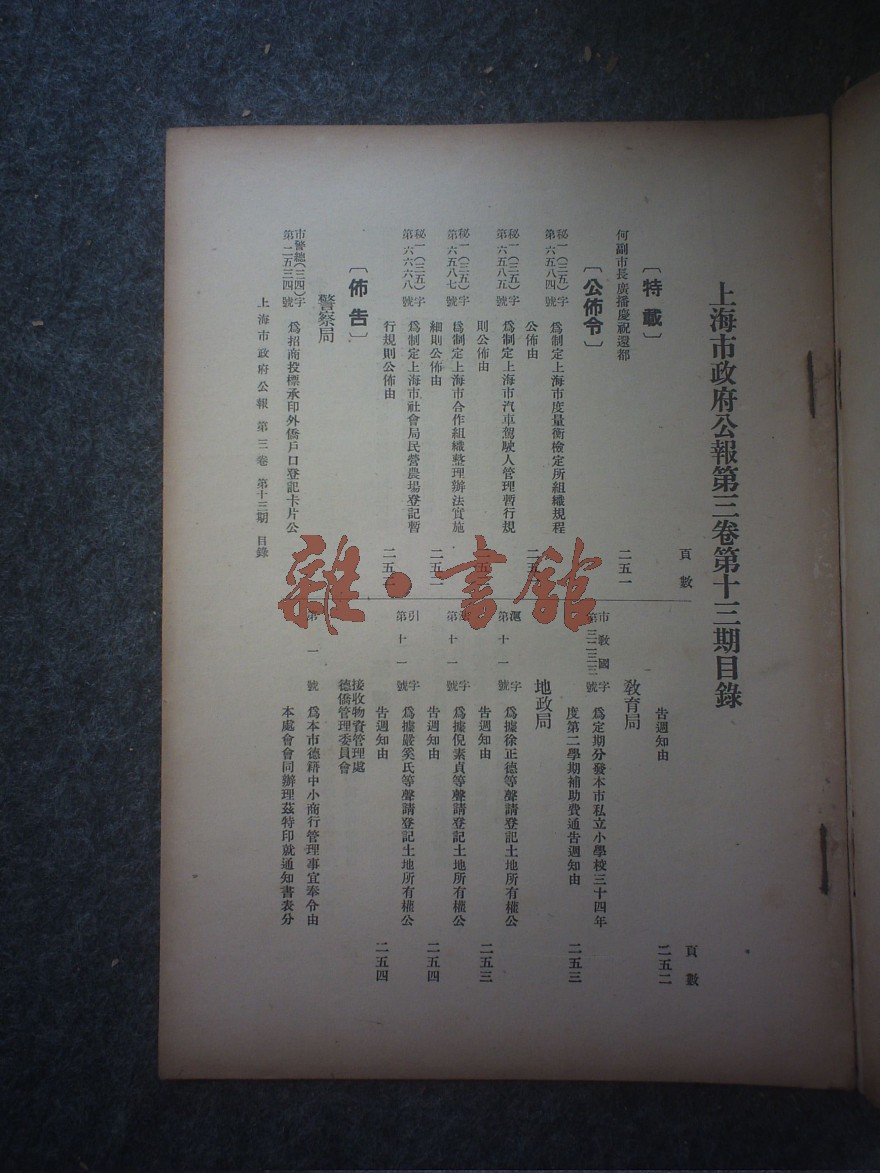 上海市政府公報第三卷第十三期目錄
頁數
〔特載〕
何副市長廣播慶祝還都
二五一
〔公佈令〕
秘一(三五)字
第六五八四號
爲制定上海市度量衡檢定所組織規程
公佈由
二五
秘一(三五)字
第六五八五號
爲制定上海市汽車駕駛人管理暫行規
則公佈由
五
秘一(三五)字
第六五八七號
爲制定上海市合作組織整理辦法實施
細則公佈由
二五二
秘一(三五)字
第六六六八號
爲制定上海市社會局民營農場登記暫
行規則公佈由
二五
〔佈告〕
警察局
市警總(三四)字
第二五三四號
爲招商投標承印外僑戶口登記卡片公
頁數
告週知由
二五二
教育局
市教國字
第三二三三號
爲定期分發本市私立小學校三十四年
度第二學期補助費通告週知由
二五三
地政局
滬字
第十一號
爲據徐正德等聲請登記土地所有權公
告週知由
二五三
字
第十一號
爲據倪素貞等聲請登記土地所有權公
告週知由
二五四
引字
第十一號
爲據嚴奚氏等聲請登記土地所有權公
告週知由
二五四
接收物資管理處
德僑管理委員會
第一號
爲本市德籍中小商行管理事宜奉令由
本處會會同辦理茲特印就通知書表分
上海市政府公報 第三卷 第十三期 目錄
雜·書館